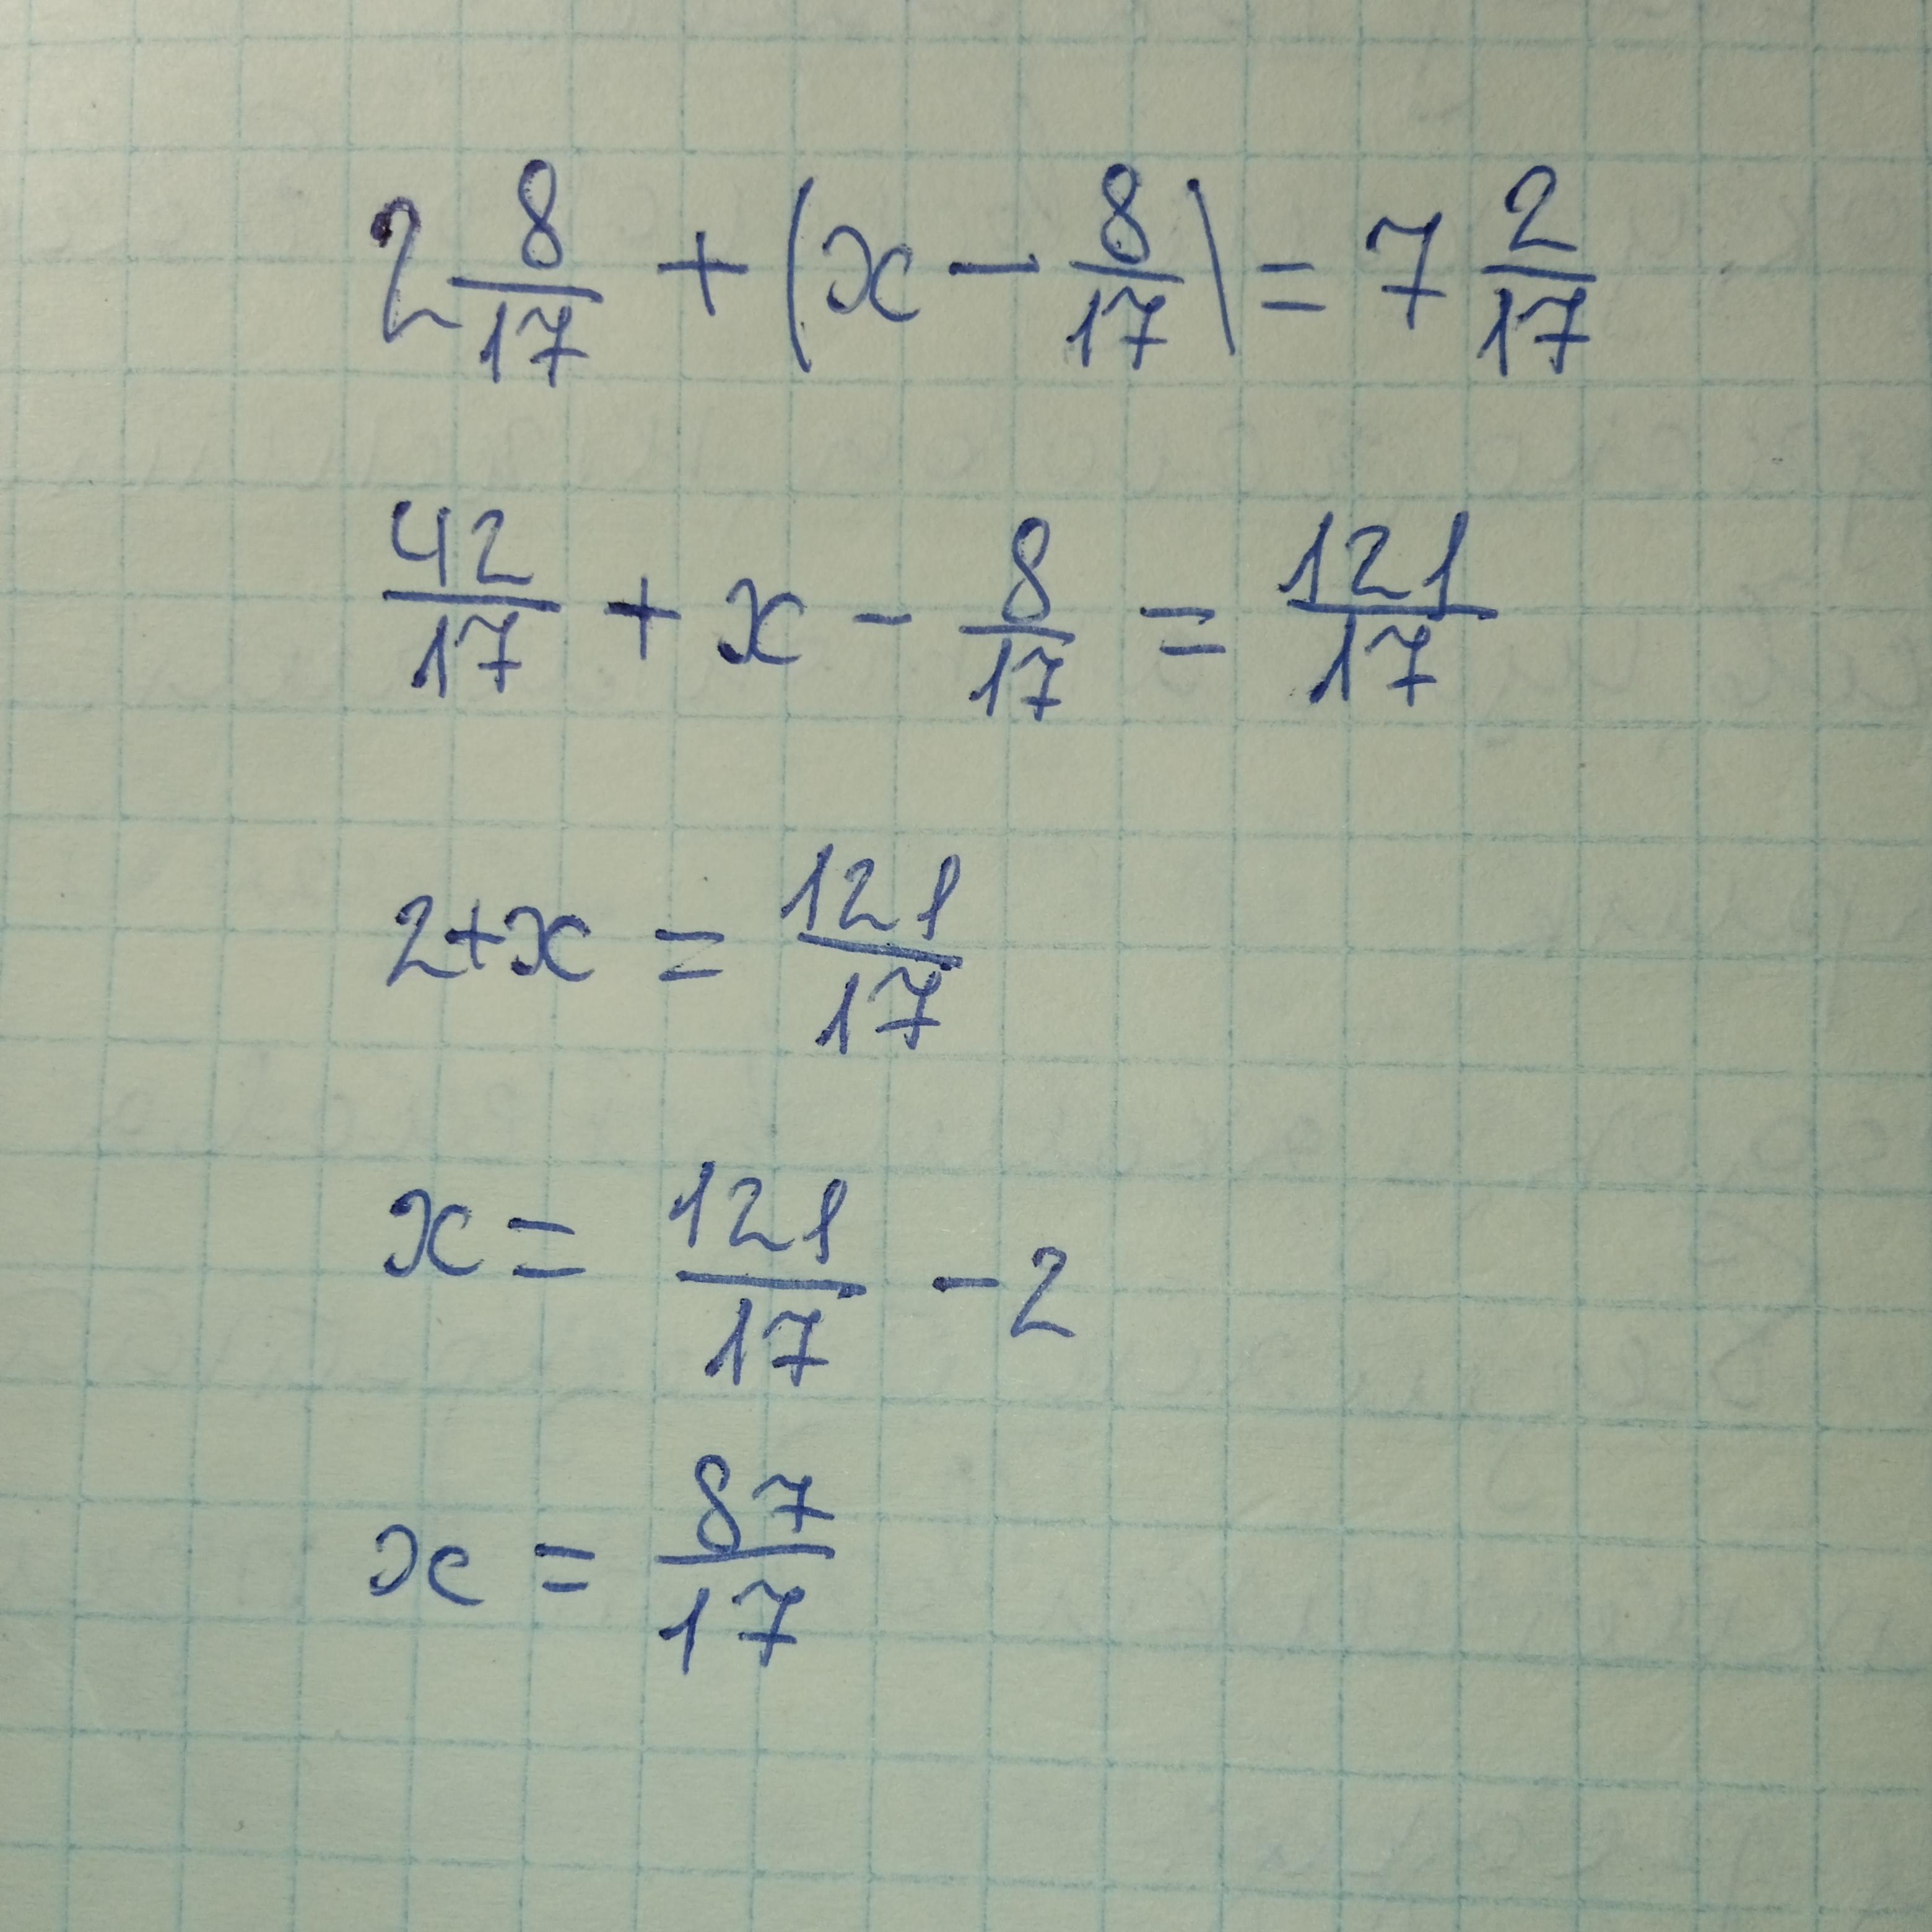 2 8/17 + (x - 8/17) = 7 2/17
42/17 + x - 8/17 = 121/17
2+x = 121/17
x = 121/17 - 2
x = 87/17